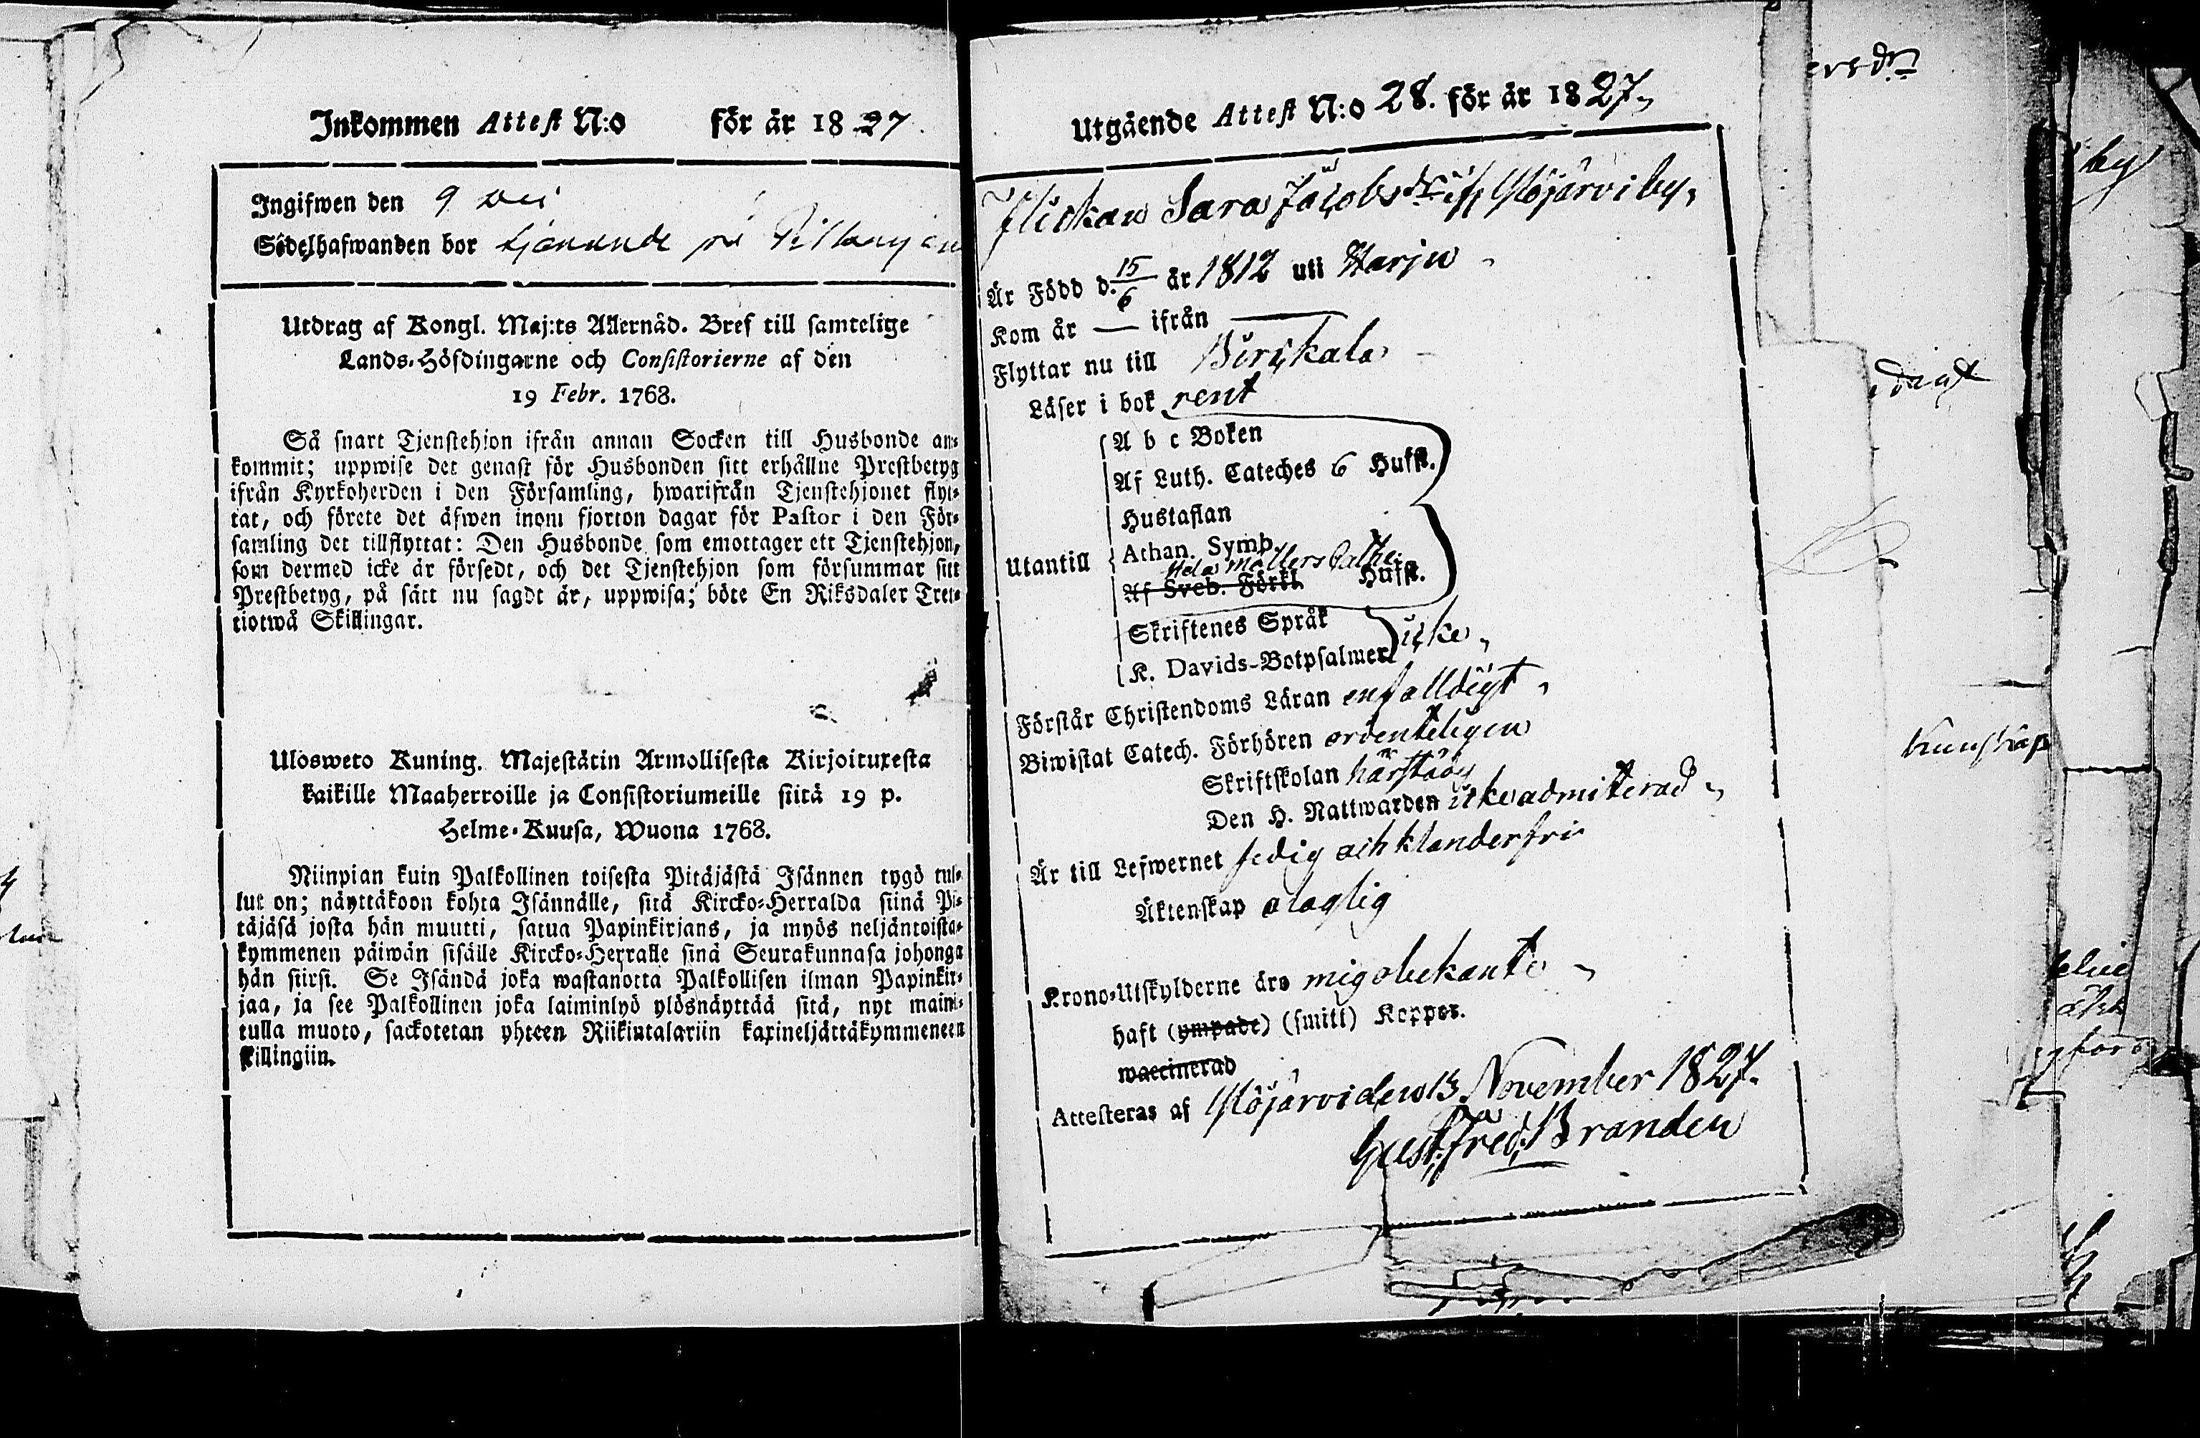 Inkommen Attest N:o för år 1827.
Ingifwen den 9
Sedelhafwanden bor tjenande på
Utdrag af Kongl. Maj:ts Allernåd. Bref till samtelige
Lands-Höfdingarne och Consistorierne af den
19 Febr. 1768.
Så snart Tjenstehjon ifrån annan Socken till Husbonde an-
kommit; uppwise det genast för Husbonden sitt erhållne Prestbetyg
ifrån Kyrkoherden i den Församling, hwarifrån Tjenstehjonet flyt-
tat, och förete det äfwen inom fjorton dagar för Pastor i den För-
samling det tillflyttat: Den Husbonde som emottager ett Tjenstehjon,
som dermed icke är försedt, och det Tjenstehjon som försummar sitt
Prestbetyg, på sätt nu sagdt är, uppwisa; böte En Riksdaler Tret-
tiotwå Skillingar.
Ulosweto Kuning. Majestätin Armollisesta Kirjoituxesta
kaikille Maaherroille ja Consistoriumeille siitä 19 p.
Helme-Kuusa, Wuona 1768.
Niinpian kuin Palkollinen toisesta Pitäjästä Isännen tygö tul-
lut on; näyttäkoon kohta Isännälle, sitä Kircko-Herralda siinä Pi-
täjäsä josta hän muutti, satua Papinkirjans, ja myös neljäntoista-
kymmenen päiwän sisälle Kircko-Herralle sinä Seurakunnasa johonga
hän siirsi. Se Isändä joka wastanotta Palkollisen ilman Papinkir-
jaa, ja see Palkollinen joka laiminlyö ylösnäyttää sitä, nyt maini-
tulla muoto, sackotetan yhteen Riikintalariin kaxineljättäkymmeneen
killingiin.
Utgående Attest N:o 28. för år 1827,
Flickan Sara Jacobsdr ifr Ylöjärvi by,
Är Född d. 15/6 år 1812 uti Harju
Kom år — ifrån —
Flyttar nu till Birckala
Läser i bok rent
A b c Boken
Af Luth. Cateches 6 Hufst.
Hustaflan
Utantill Athan. Symb.
Hela Möllers Cathe.
Af Sveb. Förkl. Hufst.
Skriftenes Språk
K. Davids-Botpsalmer icke,
Förstår Christendoms Läran enfalldigt,
Biwistat Catech. Förhören ordenteligen
Skriftskolan härstädes
Den H. Nattwarden icke admiterad,
Är till Lefwernet sedig och klanderfri
Äktenskap olaglig
Krono-Utskylderne äro mig obekante
haft (ympade) (smitt) Koppor.
waccinerad
Attesteras af Ylöjärvi den 13 November 1827.
Gust. Fred. Brandén
ersdr
by
kunskap